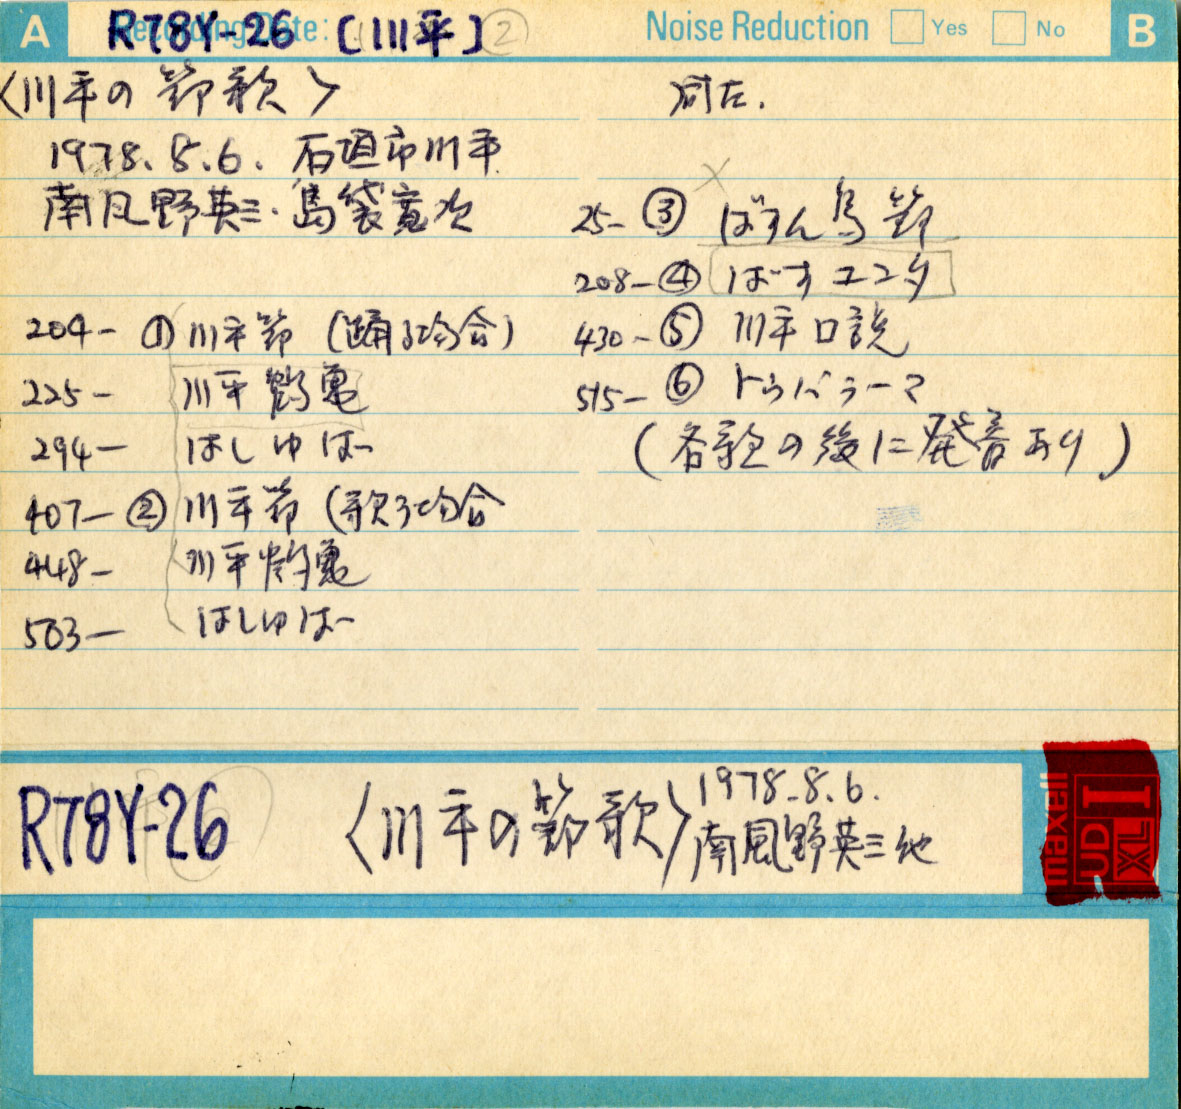 A Recording Date: R78Y-26 〔川平〕 ②
〈川平の節歌〉
1978.8.6. 石垣市川平
南風野英三・島袋寛次
204- ① 川平節 (踊る場合)
225- 川平鶴亀
294- はしゆばー
407- ② 川平節 (歌う場合
448- 川平鶴亀
503- はしゆばー
Noise Reduction Yes No B
同左.
×
25- ③ ばすん鳥節
208- ④ ばすユンタ
430- ⑤ 川平口説
515- ⑥ トゥバラーマ
(各歌の後に発音あり)
R78Y-26 〈川平の節歌〉 1978.8.6.
南風野英三他
maxell
UD
XL I